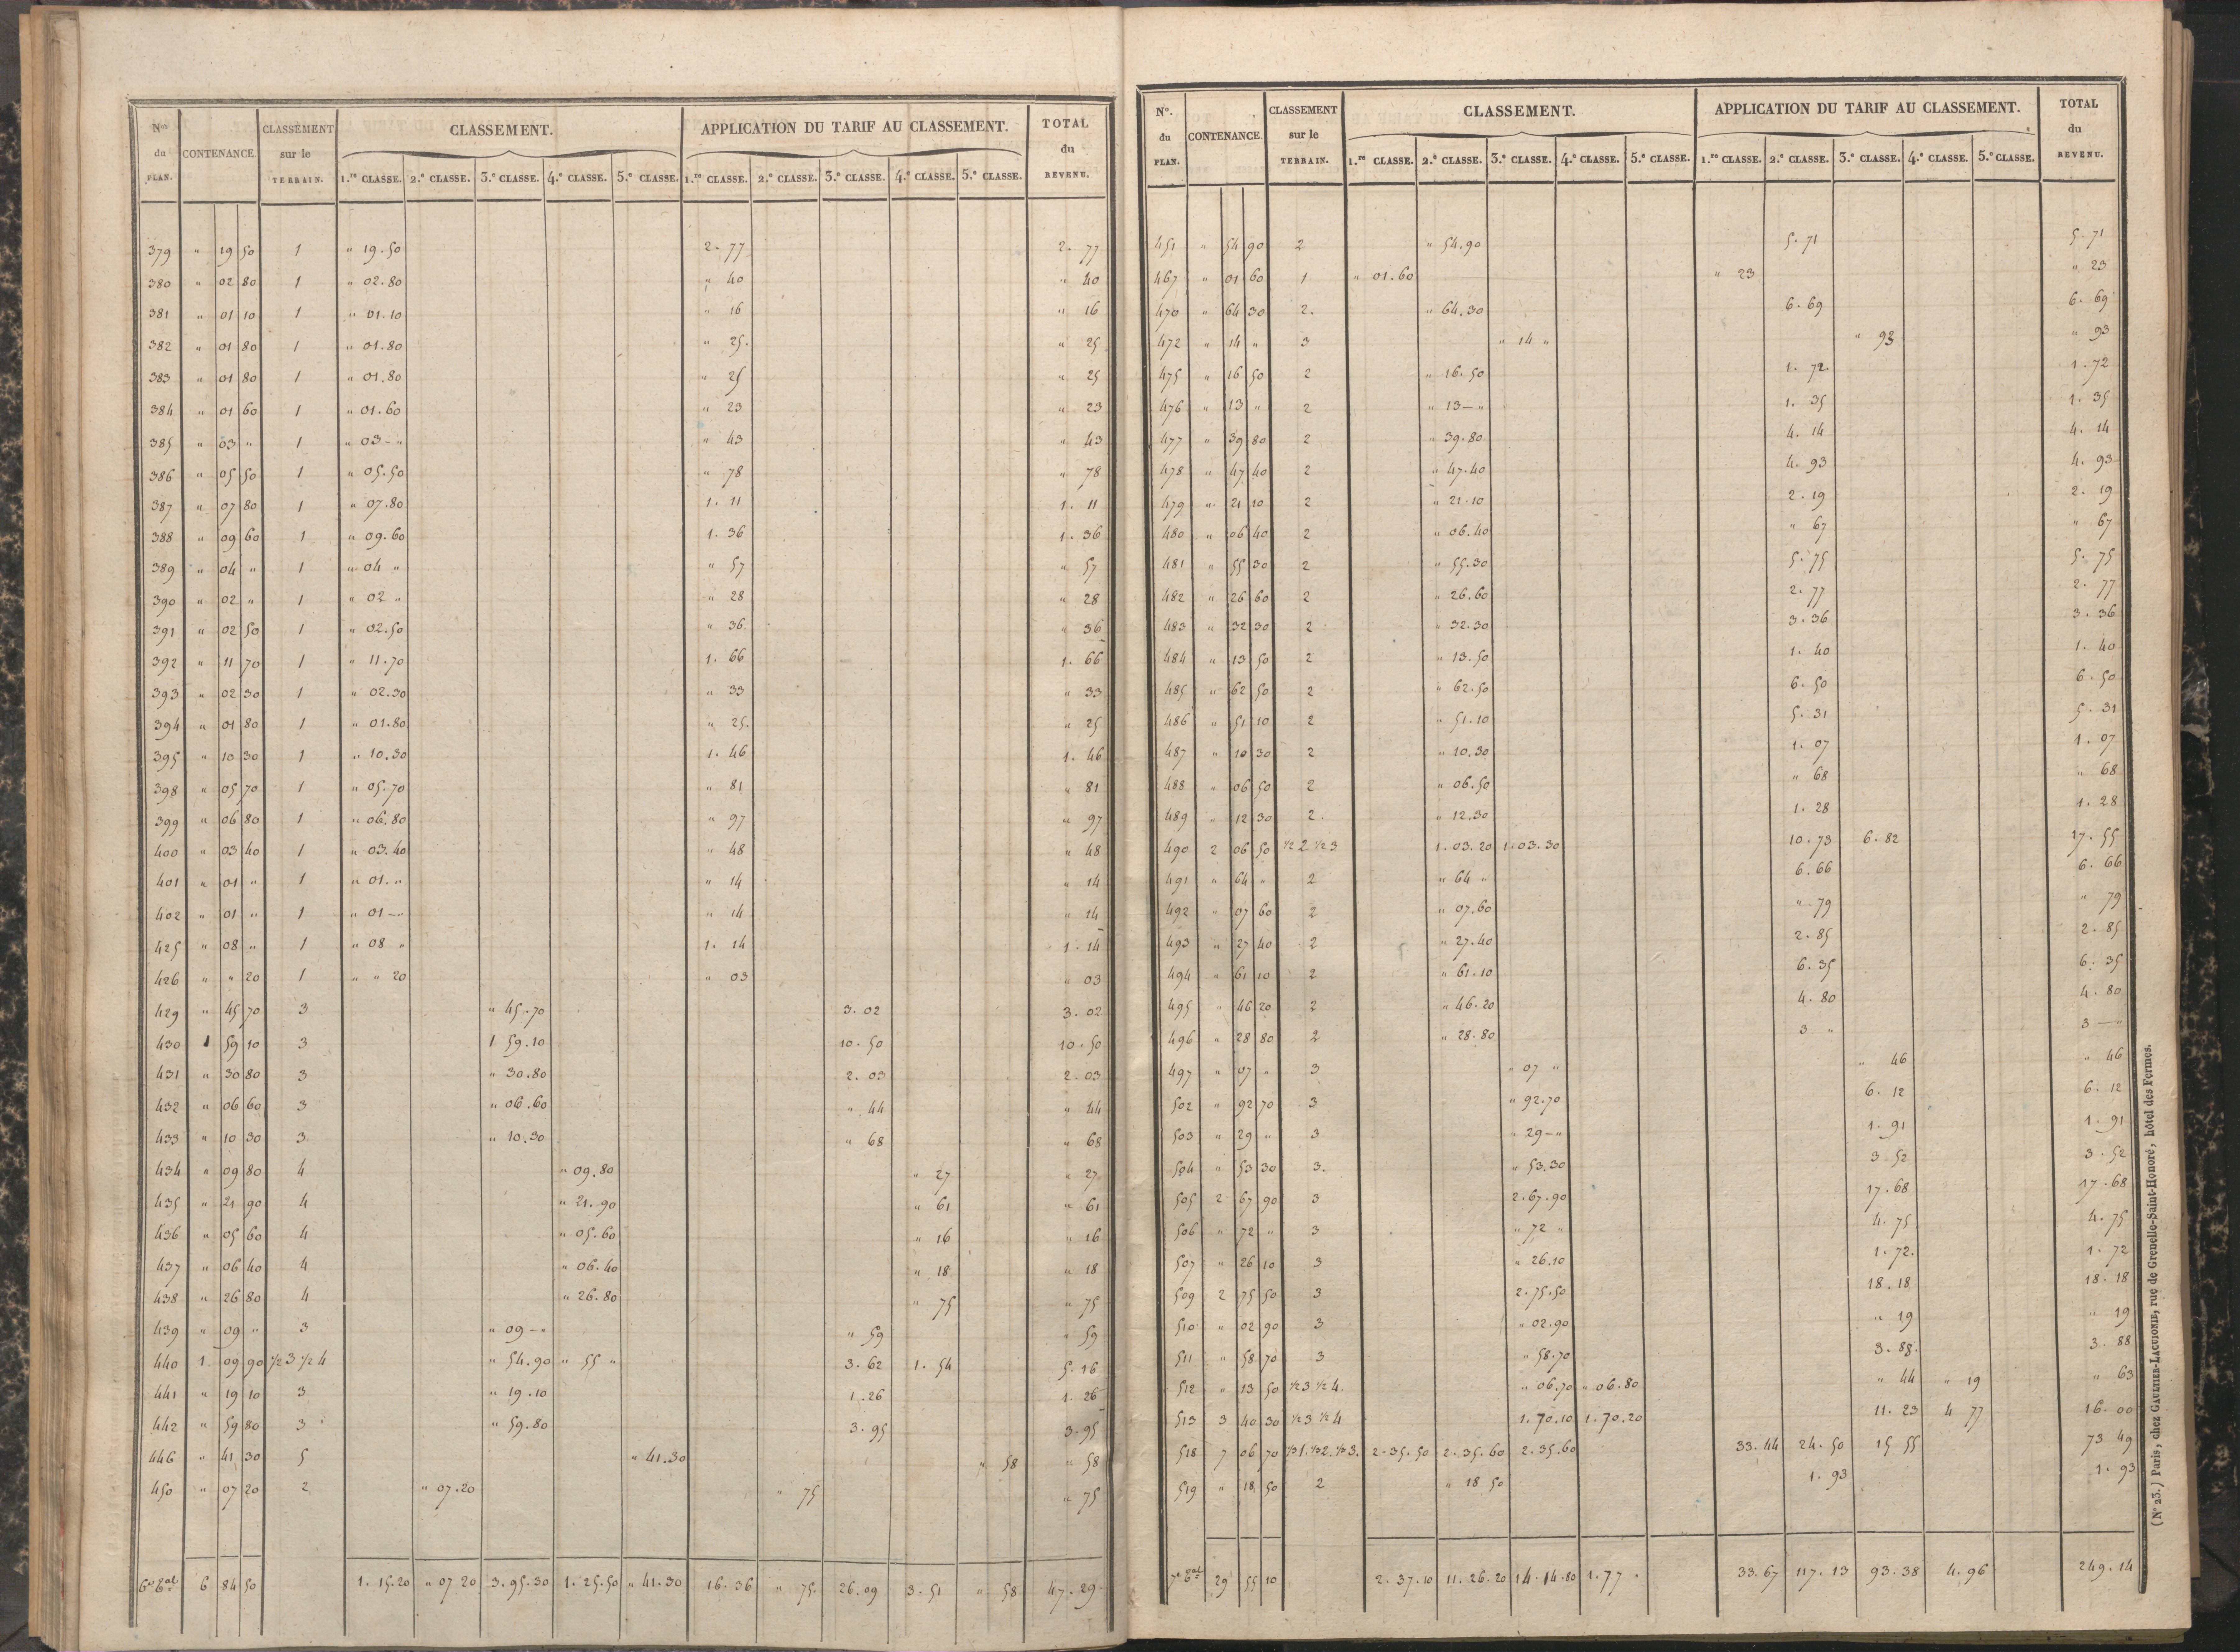 Nos du PLAN. CONTENANCE. CLASSEMENT sur le TERRAIN. CLASSEMENT. APPLICATION DU TARIF AU CLASSEMENT. TOTAL du REVENU.
1.re CLASSE. 2.e CLASSE. 3.e CLASSE. 4.e CLASSE. 5.e CLASSE. 1.re CLASSE. 2.e CLASSE. 3.e CLASSE. 4.e CLASSE. 5.e CLASSE.
379 " 19 50 1 " 19.50 2. 77 2. 77
380 " 02 80 1 " 02.80 " 40 " 40
381 " 01 10 1 " 01.10 " 16 " 16
382 " 01 80 1 " 01.80 " 25. " 25
383 " 01 80 1 " 01.80 " 25 " 25
384 " 01 60 1 " 01.60 " 23 " 23
385 " 03 " 1 " 03-" " 43 " 43
386 " 05 50 1 " 05.50 " 78 " 78
387 " 07 80 1 " 07.80 1. 11 1. 11
388 " 09 60 1 " 09.60 1. 36 1. 36
389 " 04 " 1 " 04 " " 57 " 57
390 " 02 " 1 " 02 " " 28 " 28
391 " 02 50 1 " 02.50 " 36 " 36
392 " 11 70 1 " 11.70 1. 66 1. 66
393 " 02 30 1 " 02.30 " 33 " 33
394 " 01 80 1 " 01.80 " 25. " 25
395 " 10 30 1 " 10.30 1. 46 1. 46
398 " 05 70 1 " 05.70 " 81 " 81
399 " 06 80 1 " 06.80 " 97 " 97
400 " 03 40 1 " 03.40 " 48 " 48
401 " 01 " 1 " 01." " 14 " 14
402 " 01 " 1 " 01-" " 14 " 14
425 " 08 " 1 " 08 " 1. 14 1. 14
426 " " 20 1 " " 20 " 03 " 03
429 " 45 70 3 " 45.70 3. 02 3. 02
430 1 59 10 3 1 59.10 10. 50 10. 50
431 " 30 80 3 " 30.80 2. 03 2. 03
432 " 06 60 3 " 06.60 " 44 " 44
433 " 10 30 3 " 10.30 " 68 " 68
434 " 09 80 4 " 09.80 " 27 " 27
435 " 21 90 4 " 21.90 " 61 " 61
436 " 05 60 4 " 05.60 " 16 " 16
437 " 06 40 4 " 06.40 " 18 " 18
438 " 26 80 4 " 26.80 " 75 " 75
439 " 09 " 3 " 09-" " 59 " 59
440 1. 09 90 1/2 3 1/2 4 " 54.90 " 55 " 3. 62 1. 54 5. 16
441 " 19 10 3 " 19.10 1. 26 1. 26
442 " 59 80 3 " 59.80 3. 95 3. 95
446 " 41 30 5 " 41.30 " 58 " 58
450 " 07 20 2 " 07.20 " 75 " 75
6 84 50 1. 15.20 " 07 20 3. 95.30 1. 25.50 " 41.30 16. 36 " 75. 26. 09 3. 51 " 58 47. 29
No. du PLAN. CONTENANCE. CLASSEMENT sur le TERRAIN. CLASSEMENT. APPLICATION DU TARIF AU CLASSEMENT. TOTAL du REVENU.
1.re CLASSE. 2.e CLASSE. 3.e CLASSE. 4.e CLASSE. 5.e CLASSE. 1.re CLASSE. 2.e CLASSE. 3.e CLASSE. 4.e CLASSE. 5.e CLASSE.
451 " 54 90 2 " 54.90 5. 71 5. 71
467 " 01 60 1 " 01.60 " 23 " 23
470 " 64 30 2. " 64.30 6. 69 6. 69
472 " 14 " 3 " 14 " " 93 " 93
475 " 16 50 2 " 16.50 1. 72. 1. 72
476 " 13 " 2 " 13-" 1. 35 1. 35
477 " 39 80 2 " 39.80 4. 14 4. 14
478 " 47 40 2 " 47.40 4. 93 4. 93
479 " 21 10 2 " 21.10 2. 19 2. 19
480 " 06 40 2 " 06.40 " 67 " 67
481 " 55 30 2 " 55.30 5. 75 5. 75
482 " 26 60 2 " 26.60 2. 77 2. 77
483 " 32 30 2 " 32.30 3. 36 3. 36
484 " 13 50 2 " 13.50 1. 40 1. 40
485 " 62 50 2 " 62.50 6. 50 6. 50
486 " 51 10 2 " 51.10 5. 31 5. 31
487 " 10 30 2 " 10.30 1. 07 1. 07
488 " 06 50 2 " 06.50 " 68 " 68
489 " 12 30 2. " 12.30 1. 28 1. 28
490 2 06 50 1/2 2 1/2 3 1. 03. 20 1. 03. 30 10. 73 6. 82 17. 55
491 " 64 " 2 " 64 " 6. 66 6. 66
492 " 07 60 2 " 07.60 " 79 " 79
493 " 27 40 2 " 27.40 2. 85 2. 85
494 " 61 10 2 " 61.10 6. 35 6. 35
495 " 46 20 2 " 46.20 4. 80 4. 80
496 " 28 80 2 " 28.80 3 " 3 - "
497 " 07 " 3 " 07 " " 46 " 46
502 " 92 70 3 " 92.70 6. 12 6. 12
503 " 29 " 3 " 29-" 1. 91 1. 91
504 " 53 30 3. " 53.30 3 52 3. 52
505 2 67 90 3 2. 67.90 17. 68 17. 68
506 " 72 " 3 " 72 " 4. 75 4. 75
507 " 26 10 3 " 26.10 1. 72. 1. 72
509 2 75 50 3 2. 75.50 18. 18 18. 18
510 " 02 90 3 " 02.90 " 19 " 19
511 " 58 70 3 " 58.70 3. 88. 3. 88
512 " 13 50 1/2 3 1/2 4. " 06.70 " 06.80 " 44 " 19 " 63
513 3 40 30 1/2 3 1/2 4 1. 70.10 1. 70.20 11. 23 4 77 16. 00
518 7 06 70 1/3 1. 1/3 2. 1/3 3. 2-35.50 2. 35. 60 2. 35.60 33. 44 24. 50 15 55 73 49
519 " 18 50 2 " 18 50 1. 93 1. 93
29 55 10 2. 37.10 11. 26. 20 14. 14.80 1. 77 " 33. 67 117. 13 93. 38 4. 96 249. 14
(No 23.) Paris, chez GAULTIER-LAGUIONIE, rue de Grenelle-Saint-Honoré, hôtel des Fermes.